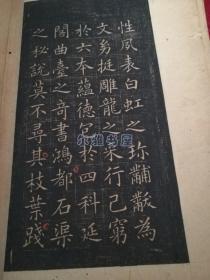 性夙表白虹之珎黼黻為
文男挺雕龍之采行己窮
於六本蘊德包於四科延
閣曲臺之奇書鴻都石渠
之秘說莫不尋其枝葉踐